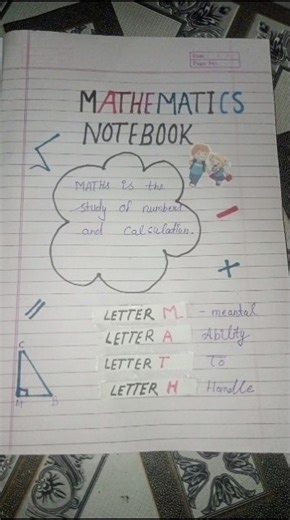 Date
Page No.
MATHEMATICS
NOTEBOOK
MATHs is the
study of numbers
and calculation.
LETTER M - meantal
LETTER A Ability
LETTER T To
LETTER H Handle
C
A B